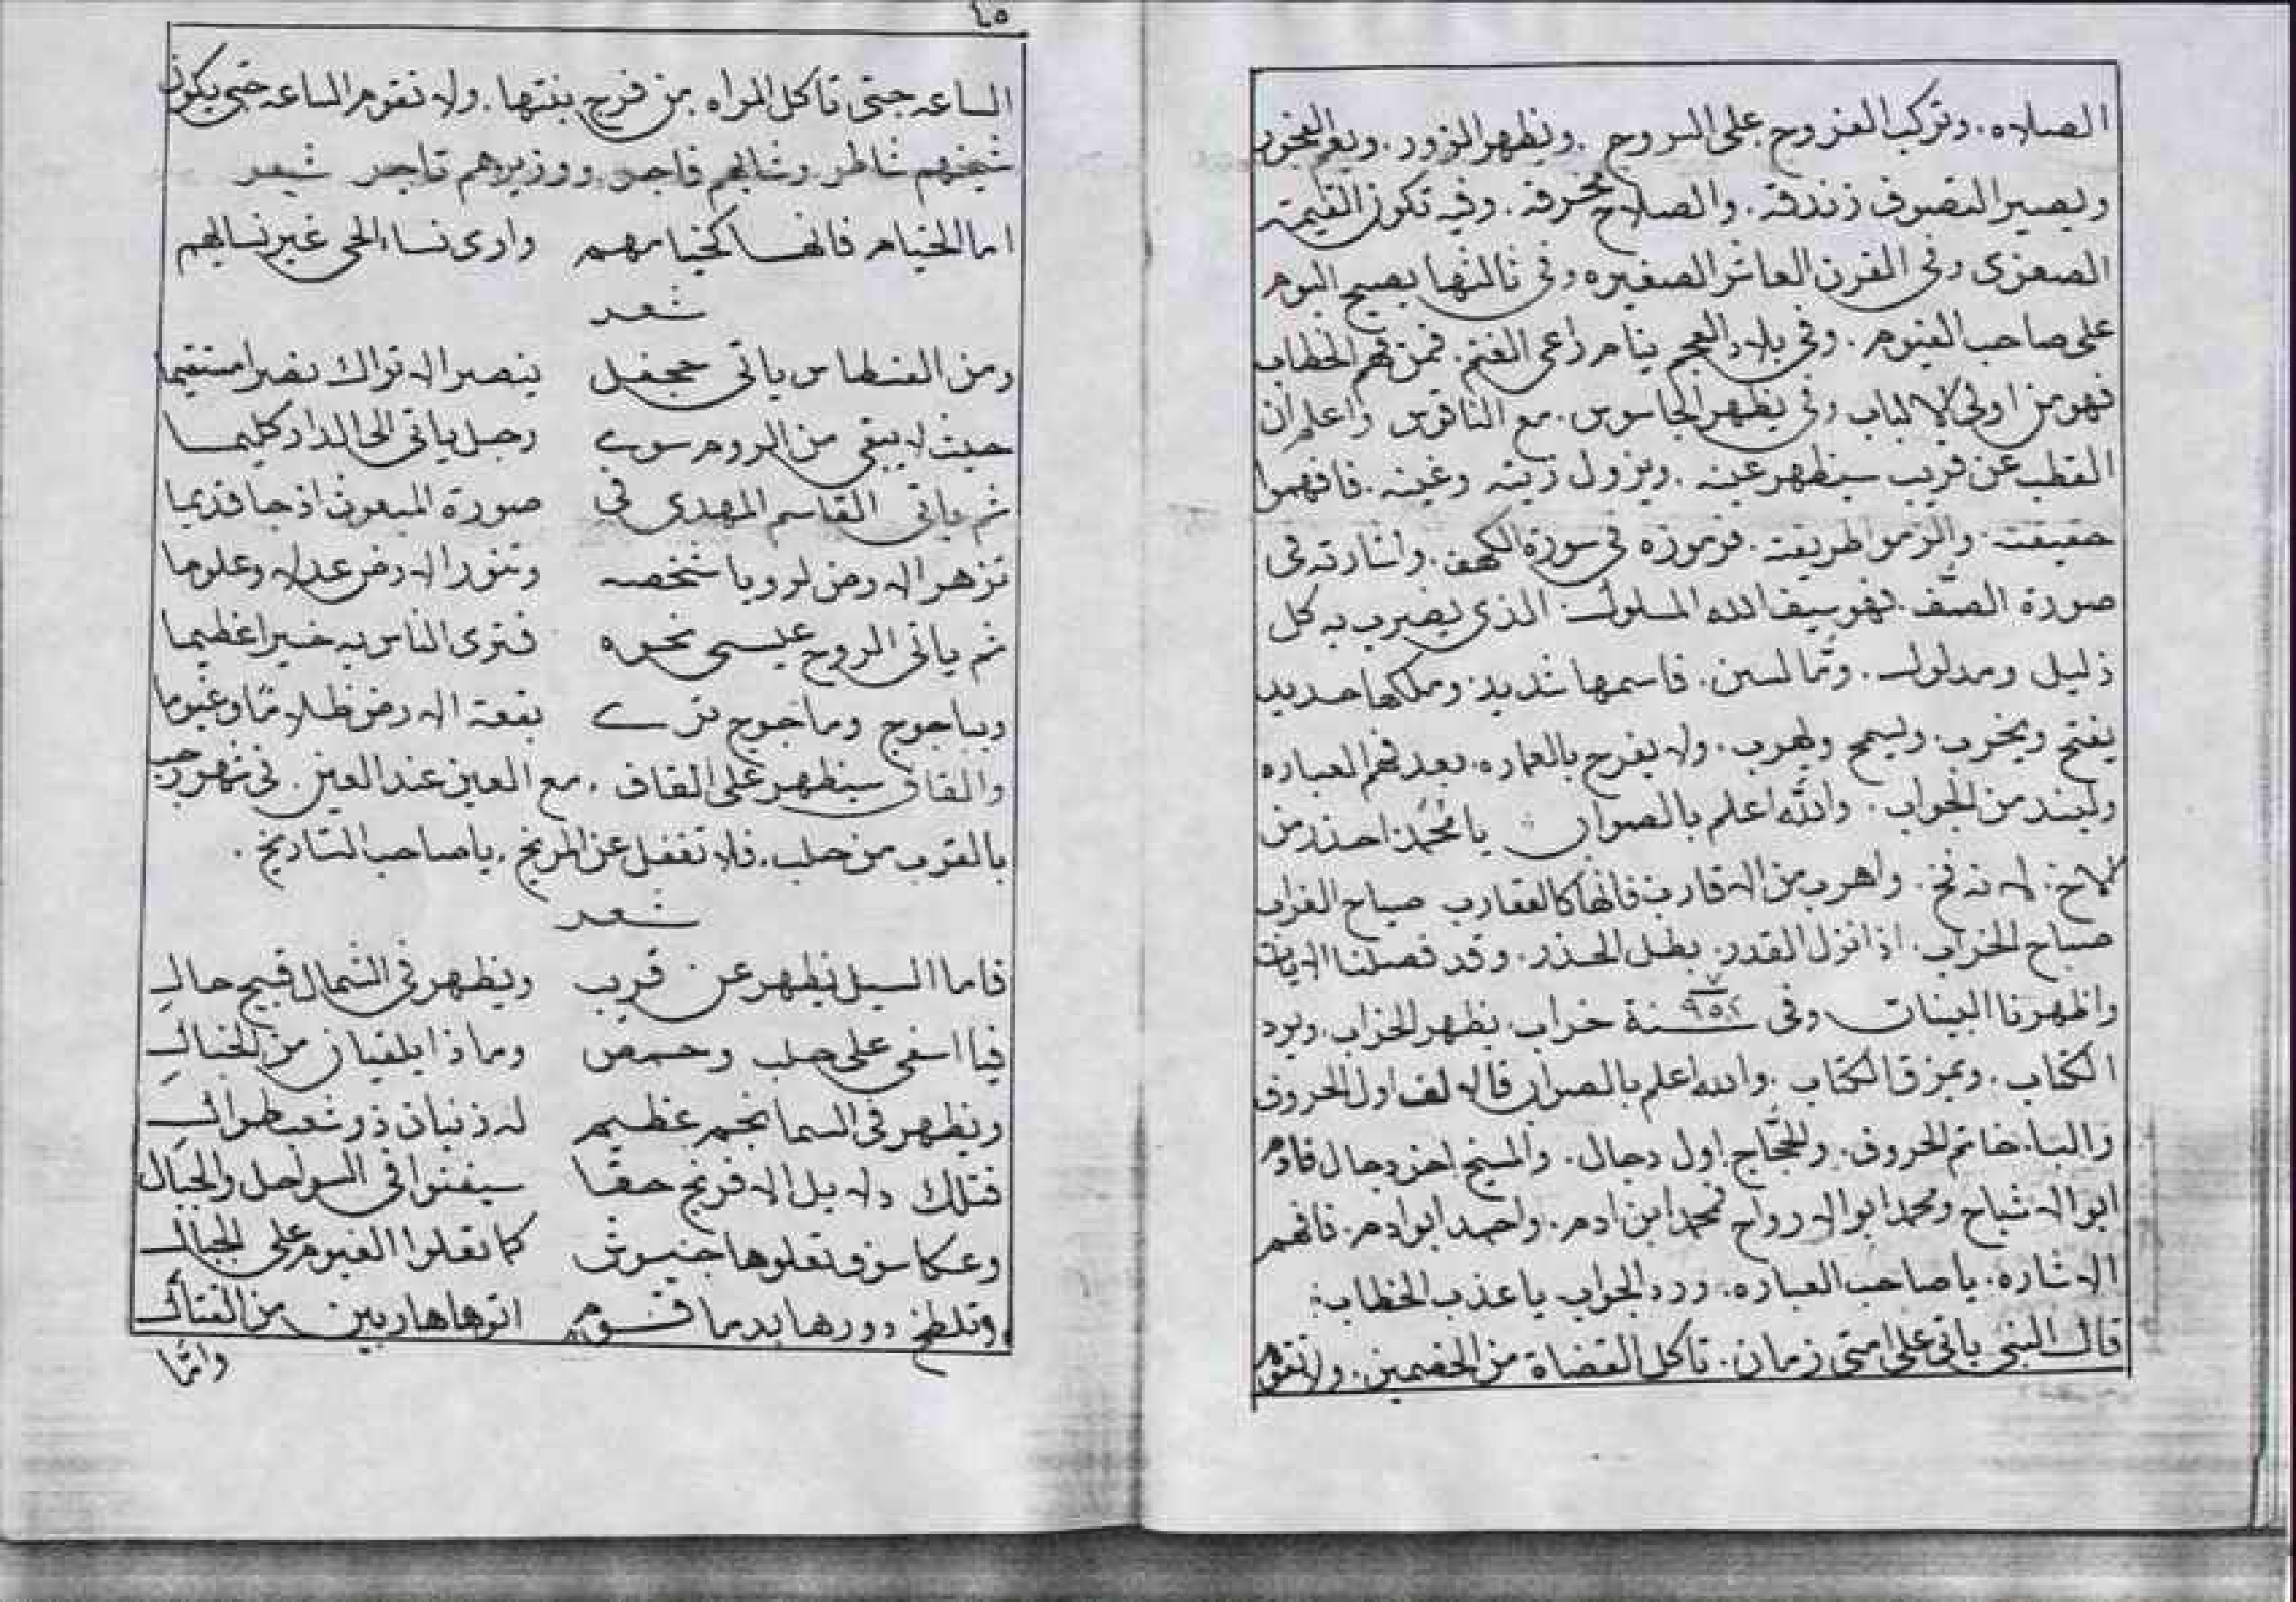 الصلاه. وتركب الفروج على السروج. ويظهر الزور. ويعم الفجور
ويصير التصوف زندقه. والصلاح مخرفه. وفيه تكون القيمة
الصغرى وفي القرن العاشر الصغيره وفي ثالثها يصيح البوم
على صاحب الفيوم. وفي بلاد العجم ينام راعى الغنم. فمن فهم الخطاب
فهو من اولى الالباب وفي يظهر الجاسوس. مع الناقوس واعلم ان
القطب عن قريب سيظهر عينه. ويزول رينه وغينه. فافهموا
حقيقت. والزموا طريقت. فرموزه فى سورة الكهف. واشارته فى
صورة الصف. فهو سيف الله المسلوك. الذى يضرب به كل
ذليل ومدلول. وتما لسين. فاسمها شديد. وملكها حديد
يفتح ويخرب. ويسمح ويهرب. ولا يفرح بالعماره. بعد فهم العباره
وليند من الجواب. والله اعلم بالصواب يا محمد احذر من
الاخ. لانه فخ. واهرب من الاقارب فانها كالعقارب صياح الغراب
صباح الخراب. اذا نزل القدر. بطل الحذر. وقد فصلنا الايات
واظهرنا البينات وفى ٩٥٢ سنة خراب. يظهر الخراب. ويرد
الكتاب. ويمزق الكتاب. والله اعلم بالصواب فالالف اول الحروف
واليا. خاتم الحروف. والحجاج اول دجال. والمسيح اخر دجال فادم
ابو الاشباح ومحمد ابو الارواح فمحمد ابن ادم. واحمد ابو ادم. فافهم
الاشاره. يا صاحب العباره. ورد الجواب يا عذب الخطاب:
قال النبى ياتى على امتى زمان. تاكل القضاة من الخصمين. ولا تقوم
٦٥
الساعه حتى تاكل المراه من فرج بنتها. ولا تقوم الساعه حتى يكون
شيخهم شاطر. وشابهم فاجر. ووزيرهم تاجر شعر
اما الخيام فانها كخيامهم وارى نساء الحى غير نسايهم
شعر
ومن الغطاس ياتى جحفل ينصر الاتراك نصرا مستقيما
حيث لا يبقى من الروم سوى رجل ياتى الى الدار كليما
ثم ياتى القاسم المهدى فى صورة المبعوث اذ جا قديما
تزهر الارض لرويا شخصه وتنور الارض عدلا وعلوما
ثم ياتى الروح عيسى نحوه فترى الناس به خيرا عظيما
وبياجوج وماجوج ترى بقعة الارض ظلاما وغيوما
والقاف سيظهر على القاف. مع العين عند العين. فى شهر رجب
بالقرب من حلب. فلا تغفل عن المريخ. يا صاحب التاريخ.
شعر
فاما السيل يظهر عن قريب ويظهر فى الشمال قبيح حال
فيا اسفى على حلب وحمص وما ذا يلقيان من الخبال
ويظهر فى السما نجم عظيم له ذنبان ذو شعب طوال
فتلك دلايل الافرنج حقا سيفنوا فى السواحل والجبال
وعكا سوف تعلوها جيوش كما تعلوا الغيوم على الجبال
وتلطخ دورها بدما قوم اتوها هاربين من القتال
واما